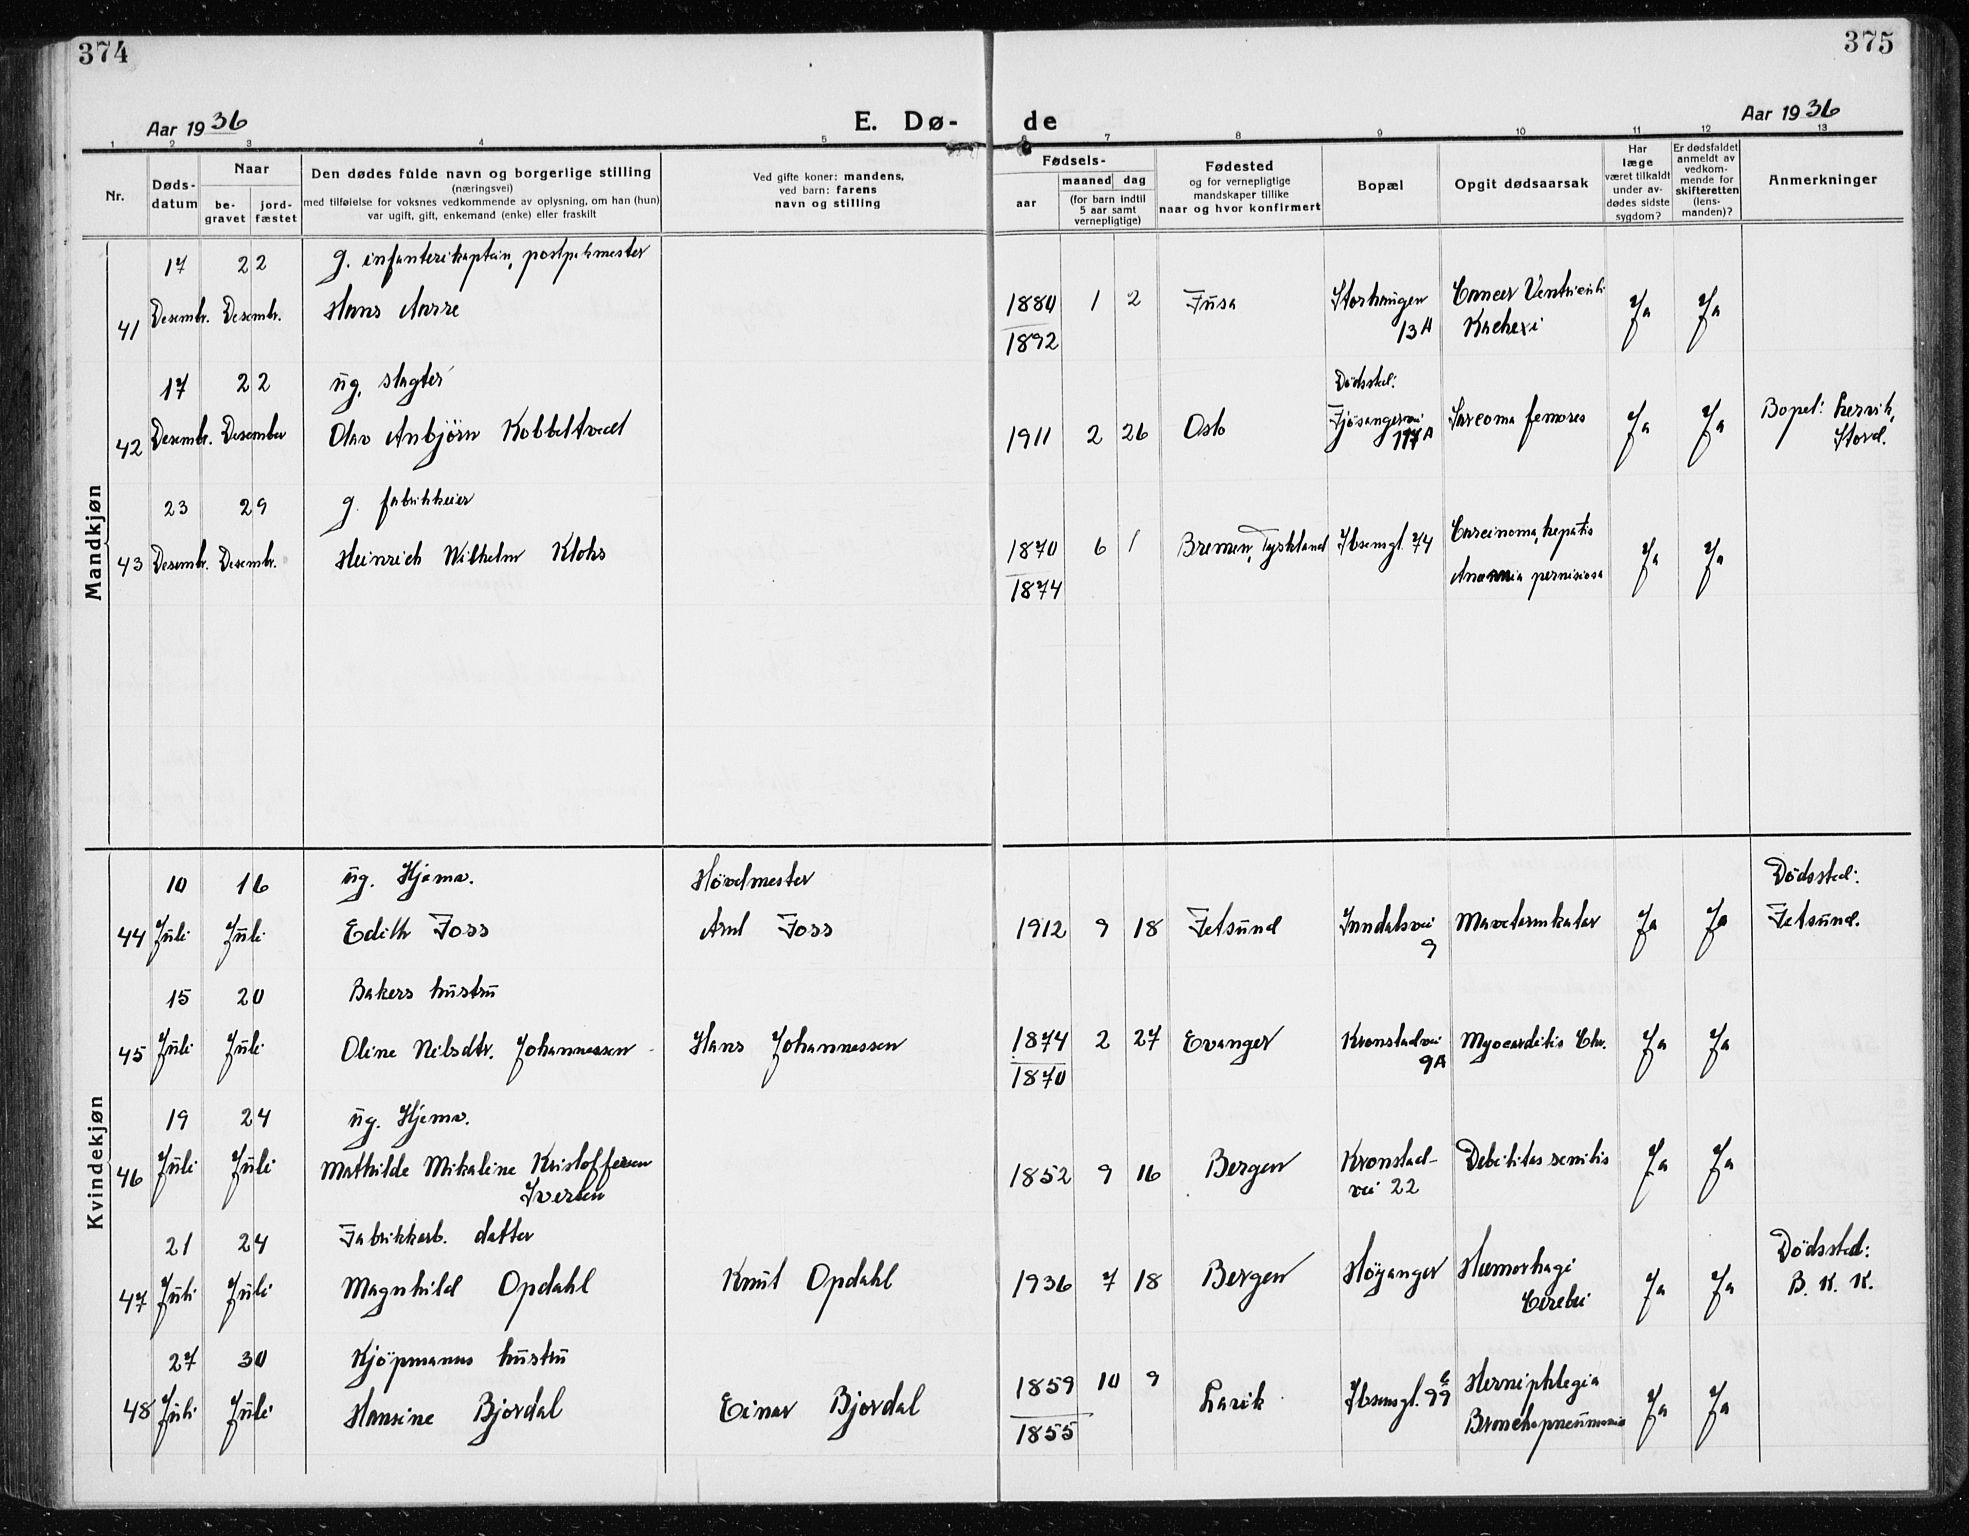 374
375
Aar 1936
E. Dø-
de
Aar 1936
1 2 3 4 5 6 7 8 9 10 11 12 13
Nr.
Døds-
datum
Naar
be-
gravet
jord-
fæstet
Den dødes fulde navn og borgerlige stilling
(næringsvei)
med tilføielse for voksnes vedkommende av oplysning, om han (hun)
var ugift, gift, enkemand (enke) eller fraskilt
Ved gifte koner: mandens,
ved barn: farens
navn og stilling
Fødsels-
aar
maaned dag
(for barn indtil
5 aar samt
vernepligtige)
Fødested
og for vernepligtige
mandskaper tillike
naar og hvor konfirmert
Bopæl
Opgit dødsaarsak
Har
læge
været tilkaldt
under av-
dødes sidste
sygdom?
Er dødsfaldet
anmeldt av
vedkom-
mende for
skifteretten
(lens-
manden)?
Anmerkninger
Mandkjøn
17 22 g. infanterikaptein,
41 Desembr. Desembr. Hans Aarre 1880 1 2 Fusa Storhaugen Cancer Ventriculi Ja Ja
1892 13A Kachexi
17 22 ug. slagter Dödsted:
42 Desembr. Desember Olav Anbjörn Kobbeltvedt 1911 2 26 Oslo Fjösangervei Sarcoma femores Ja Ja Bopel: Lervik,
Stord.
23 29 g. fabrikkeier
43 Desembr. Desembr. Heinrich Wilhelm Klohs 1870 6 1 Bremen, Tyskland Ibsensgt. 74 Carcinoma, hepatis Ja Ja
1874 Anæmia pernisiosa
Kvindekjøn
10 16 ug. Hjemv. Hövelmester Dödssted:
44 Juli Juli Edith Foss Arnt Foss 1912 9 18 Fetsund Inndalsvei Mavetarmkatar Ja Ja Fetsund.
9
15 20 Bakers hustru
45 Juli Juli Oline Nilsdtr. Johannessen Hans Johannessen 1874 2 27 Evanger Kronstadvei Myocarditis Chr. Ja Ja
1870 9A
19 24 ug. Hjemv.
46 Juli Juli Mathilde Mikaline Kristoffersen 1852 9 16 Bergen Kronstad- Debilitas senilis Ja Ja
Iversen vei 22
21 24 Fabrikkarb. datter Dödssted:
47 Juli Juli Magnhild Opdahl Knut Opdahl 1936 7 18 Bergen Höyanger Hæmorhagi Ja Ja B. K. K.
Cerebri
27 30 Kjöpmanns hustru
48 Juli Juli Hansine Bjordal Einar Bjordal 1859 10 9 Larvik Ibsensgt. Hemiphlegia Ja Ja
1855 Bronchopneumonia